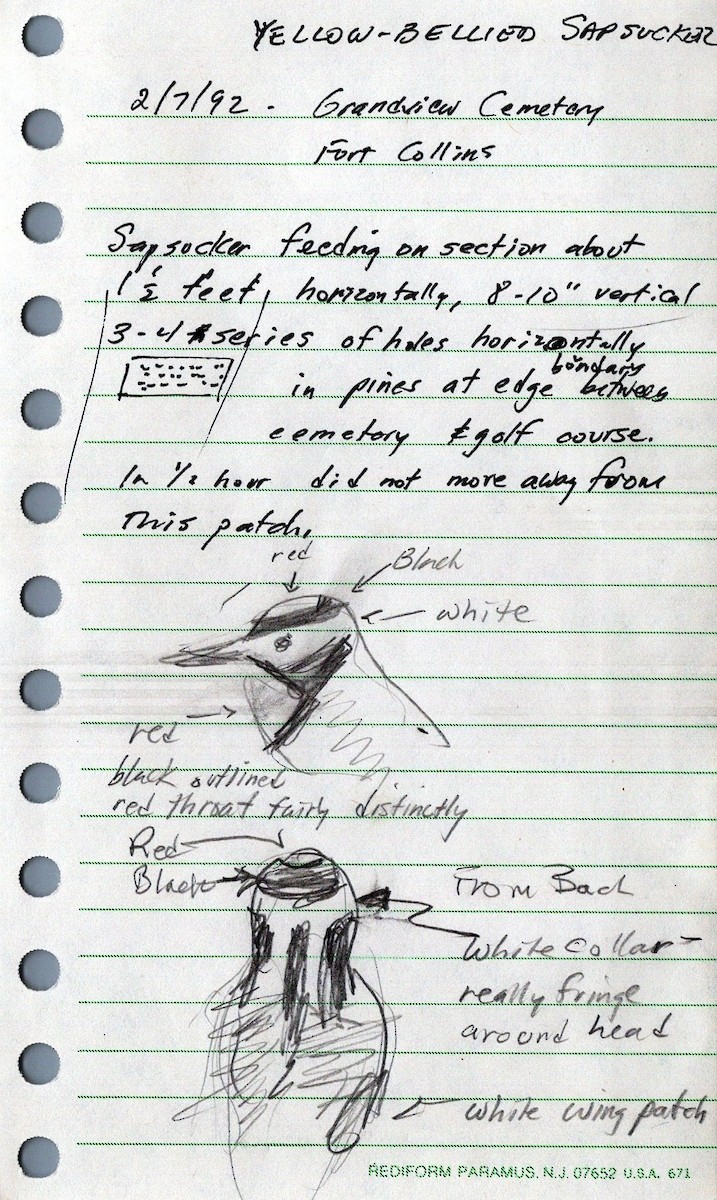 YELLOW-BELLIED SAPSUCKER
2/7/92. Grandview Cemetery
Fort Collins
Sapsucker feeding on section about
1 1/2 feet horizontally, 8-10" vertical
3-4 series of holes horizontally
boundary
in pines at edge between
cemetory & golf course.
In 1/2 hour did not move away from
This patch.
red
Black
white
red
black outlined
red throat fairly distinctly
Red
Black
From Back
White Collar-
really fringe
around head
white wing patch
REDIFORM PARAMUS, N.J. 07652 U.S.A. 671